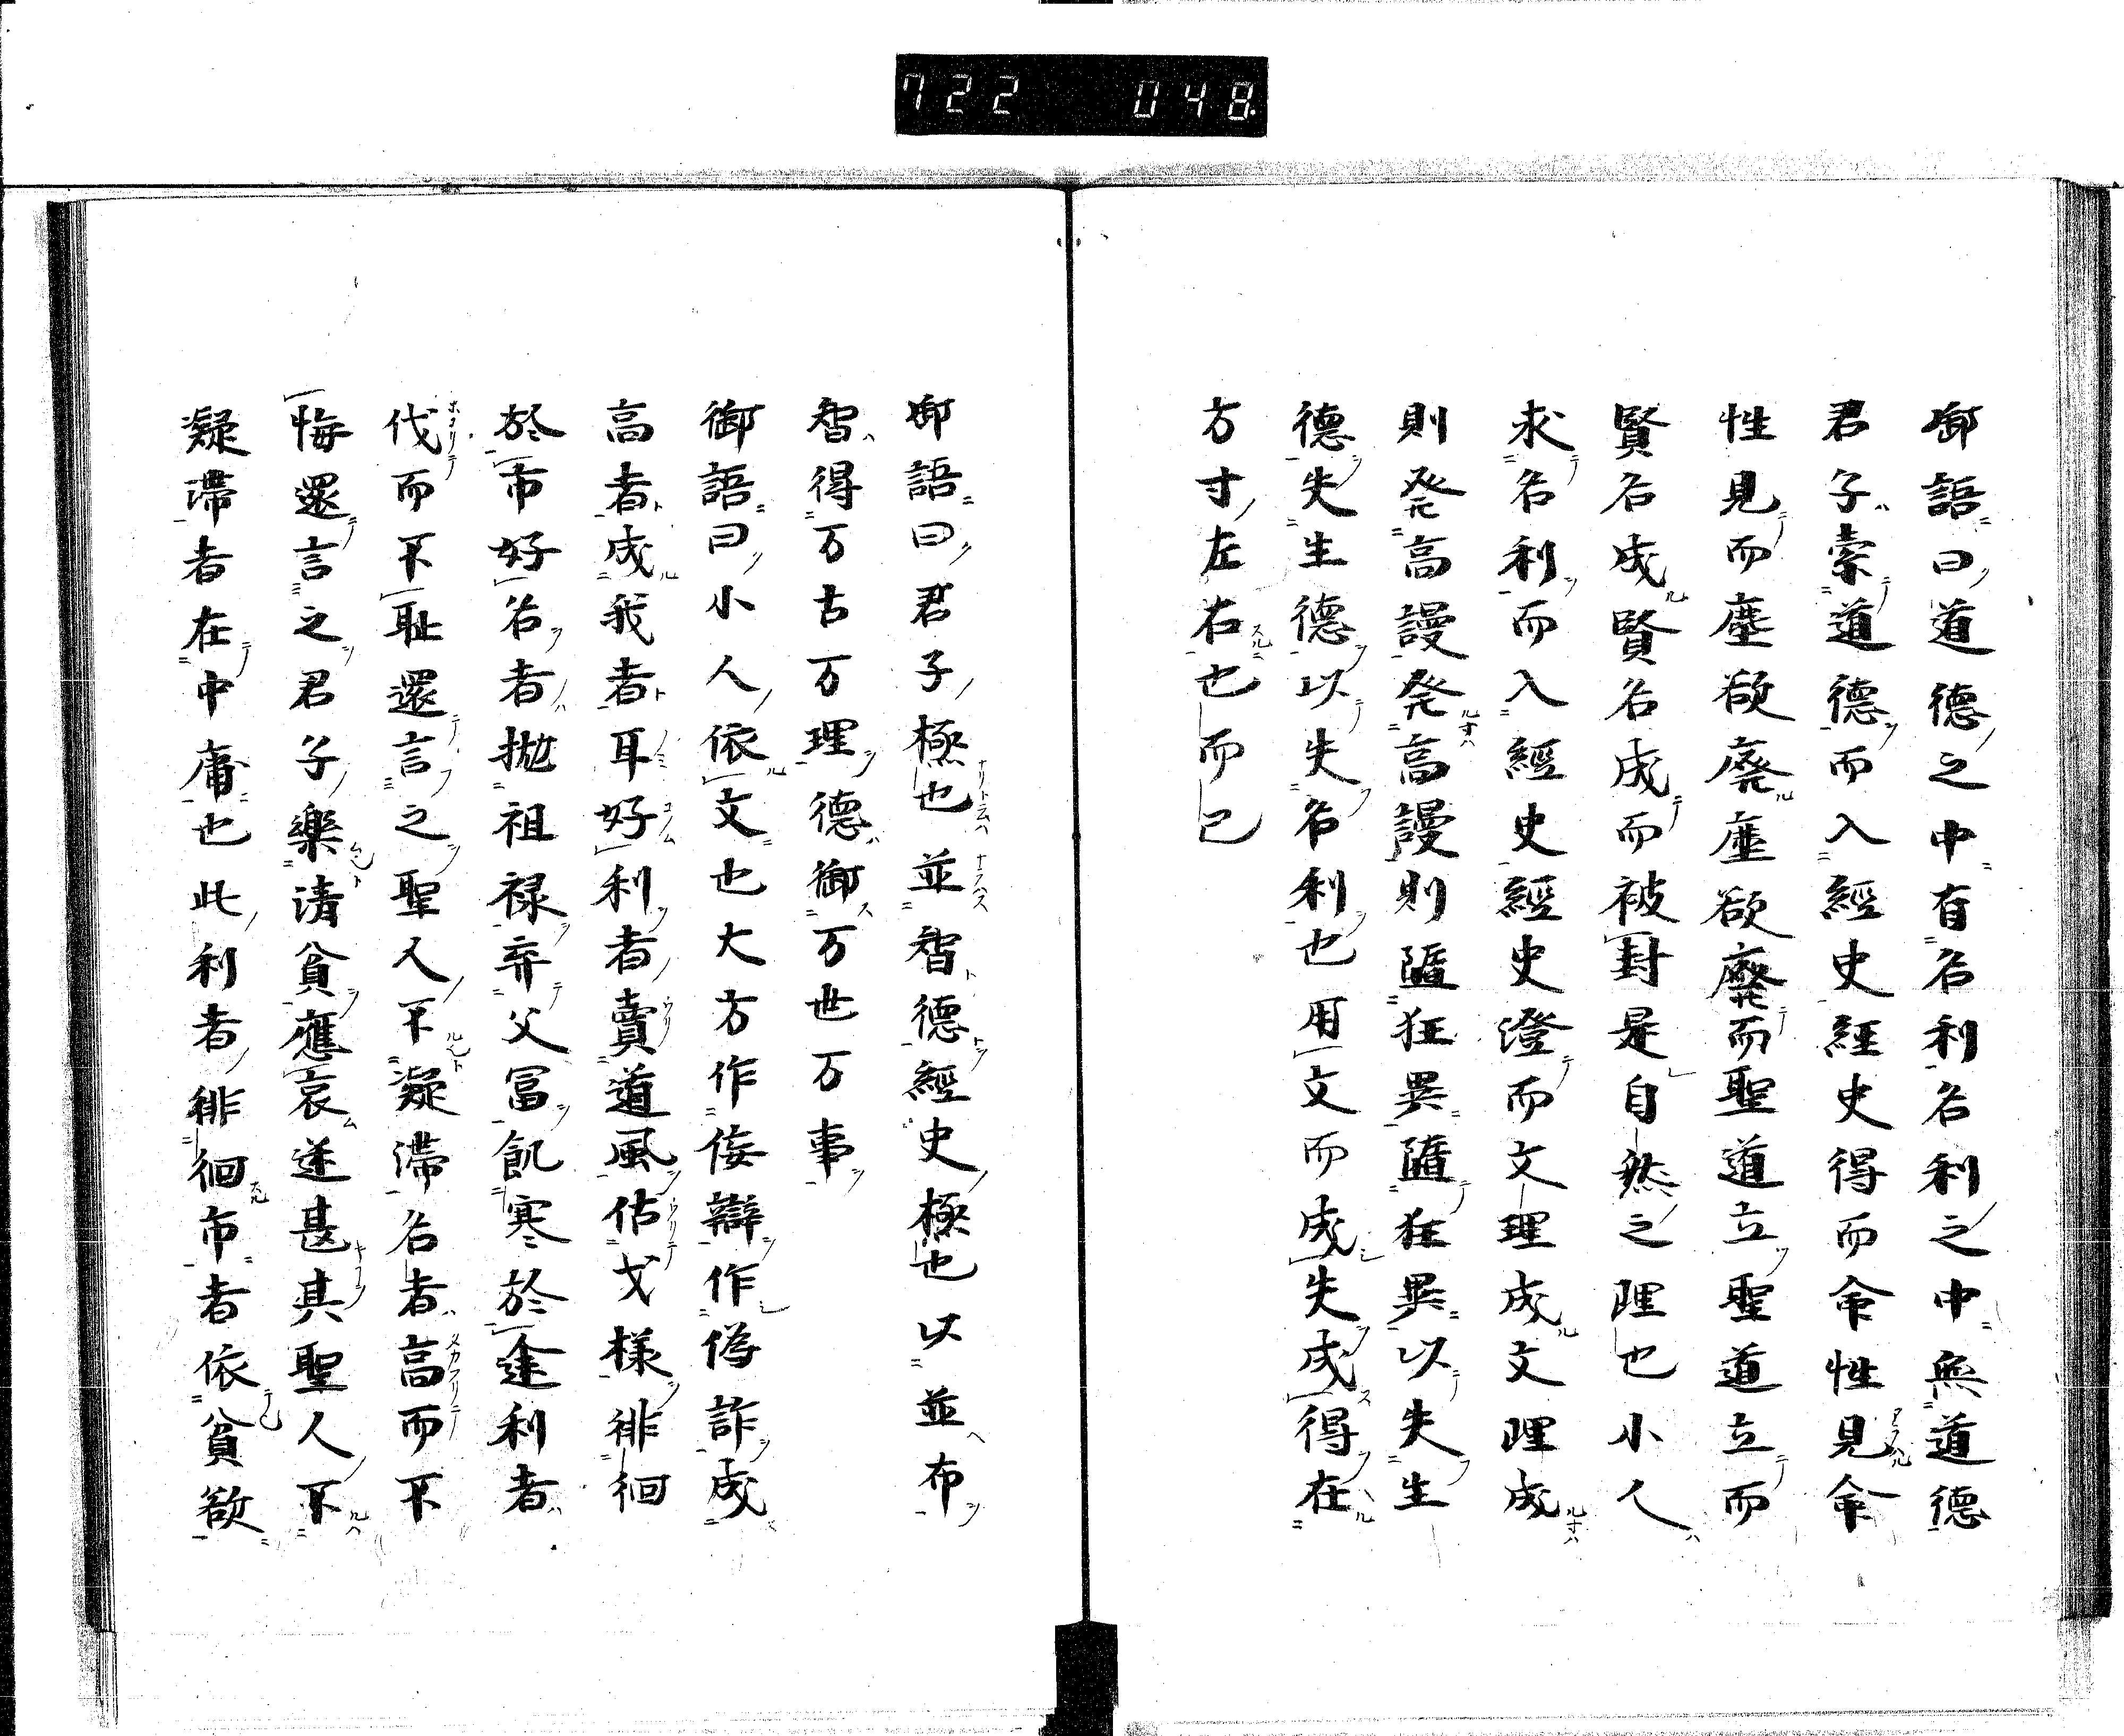 722 048
御語曰道德之中有名利名利之中無道德
君子索道德而入經史經史得而命性見命
性見而塵欲廃塵欲廢而聖道立聖道立而
賢名成賢名成而被封是自然之理也小人
求名利而入經史經史澄而文理成文理成
則発高謾発高謾則隨狂異隨狂異以失生
德失生德以失名利也用文而成失成得在
方寸左右也而已
御語曰君子極也並智德經史極也以並布
智得万古万理德御万世万事
御語曰小人依文也大方作侫辯作偽詐成
高者成我者耳好利者賣道風估戈様徘徊
於市好名者抛祖禄弃父冨飢寒於途利者
伐而不耻還言之聖人不凝滞名者高而不
悔還言之君子樂清貧應哀迷甚其聖人不
凝滞者在中庸也此利者徘徊市者依貧欲